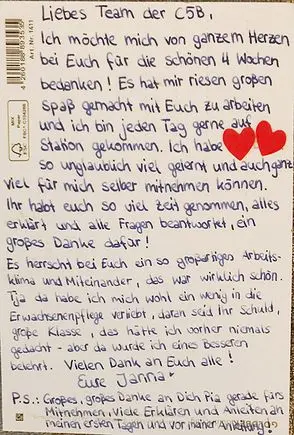 Liebes Team der C5B,
Ich möchte mich von ganzem Herzen
bei Euch für die schönen 4 Wochen
bedanken! Es hat mir riesen großen
Spaß gemacht mit Euch zu arbeiten
und ich bin jeden Tag gerne auf
Station gekommen. Ich habe
so unglaublich viel gelernt und auch ganz
viel für mich selber mitnehmen können.
Ihr habt euch so viel Zeit genommen, alles
erklärt und alle Fragen beantwortet, ein
großes Danke dafür!
Es herrscht bei Euch ein so großartiges Arbeits-
klima und Miteinander, das war wirklich schön.
Tja da habe ich mich wohl ein wenig in die
Erwachsenenpflege verliebt, daran seid Ihr Schuld,
große Klasse, das hätte ich vorher niemals
gedacht - aber da wurde ich eines Besseren
belehrt. Vielen Dank an Euch alle!
Eure Janna
P.S.: Großes, großes Danke an Dich Pia gerade fürs
Mitnehmen, Viele Erklären und Anleiten an
meinen ersten Tagen und vor meiner
Art. Nr. 1411
MIX
Papier
FSC